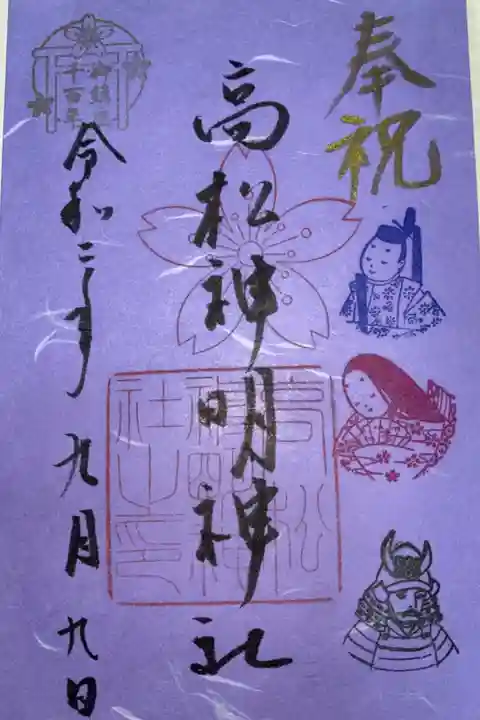 奉祝
高松神明神社
高松
神明神
社之印
御鎮座
千百年
令和二年九月九日